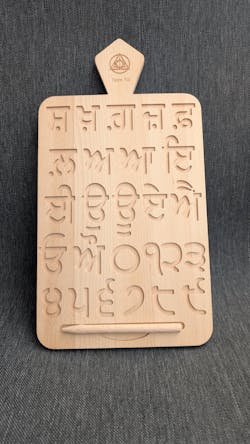 ਸ਼ ਖ਼ ਗ਼ ਜ਼ ਫ਼
ਲ਼ ਅ ਆ ਇ
ਈ ਉ ਊ ਏ ਐ
ਓ ਔ ੦ ੧ ੨ ੩
੪ ੫ ੬ ੭ ੮ ੯